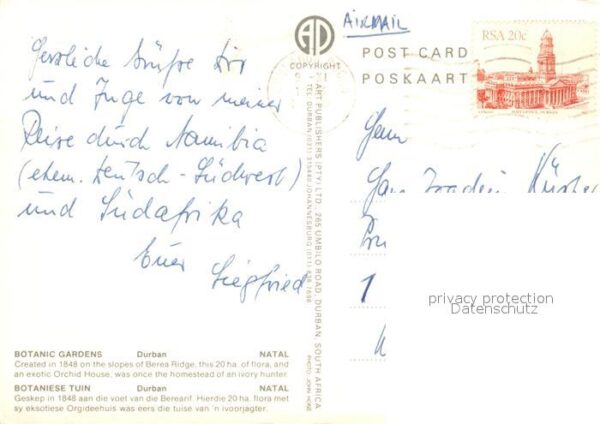 Herzliche Grüße Dir
und Inge von meiner
Reise durch Namibia
(ehem. Deutsch-Südwest)
und Südafrika
Euer
Siegfried
BOTANIC GARDENS Durban NATAL
Created in 1848 on the slopes of Berea Ridge, this 20 ha. of flora, and
an exotic Orchid House, was once the homestead of an ivory hunter.
BOTANIESE TUIN Durban NATAL
Geskep in 1848 aan die voet van die Bereanf. Hierdie 20 ha. flora met
sy eksotiese Orgideehuis was eers die tuise van 'n ivoorjagter.
AD
COPYRIGHT
ART PUBLISHERS (PTY) LTD., 265 UMBILO ROAD, DURBAN, SOUTH AFRICA
TEL. DURBAN (031) JOHANNESBURG (011)
PHOTO: JOHN HONE
AIRMAIL
POST CARD
POSKAART
RSA 20c
Herrn
1
privacy protection
Datenschutz